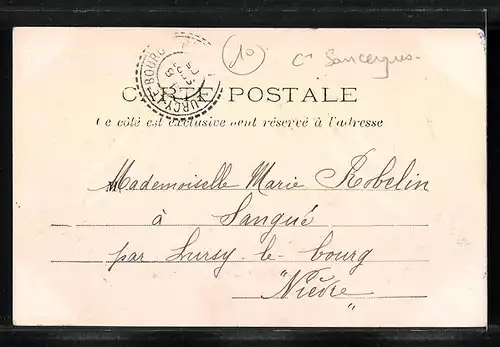 10
Cn Sancergues.
LURCY-LE-BOURG
CARTE POSTALE
Ce côté est exclusivement réservé à l'adresse
Mademoiselle Marie Robelin
à Sangué
par Lursy-le-bourg
"Nièvre"